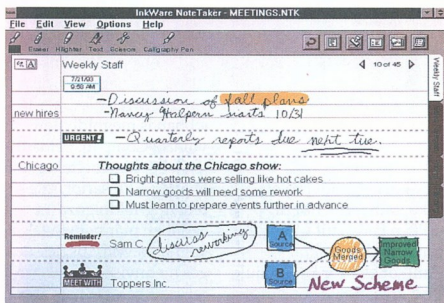 InkWare NoteTaker - MEETINGS.NTK
File Edit View Options Help
Eraser Hilighter Text Scissors Calligraphy Pen
Weekly Staff 10 of 45
Weekly Staff
7/21/93
9:50 AM
-Discussion of fall plans
new hires -Nancy Halpern starts 10/31
URGENT! -Quarterly reports due next tue.
Chicago Thoughts about the Chicago show:
Bright patterns were selling like hot cakes
Narrow goods will need some rework
Must learn to prepare events further in advance
Reminder! Sam C. discuss reworking
A Source
Goods Merged
Improved Narrow Goods
B Source
MEET WITH Toppers Inc.
New Scheme